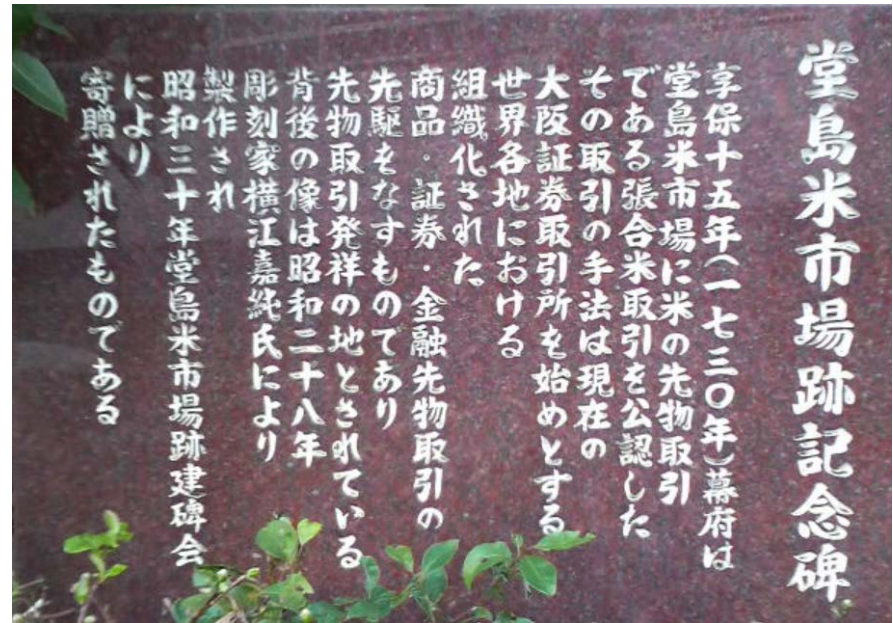 堂島米市場跡記念碑
享保十五年(一七三〇年)幕府は
堂島米市場に米の先物取引
である張合米取引を公認した
その取引の手法は現在の
大阪証券取引所を始めとする
世界各地における
組織化された
商品・証券・金融先物取引の
先駆をなすものであり
先物取引発祥の地とされている
背後の像は昭和二十八年
彫刻家横江嘉純氏により
製作され
昭和三十年堂島米市場跡建碑会
により
寄贈されたものである